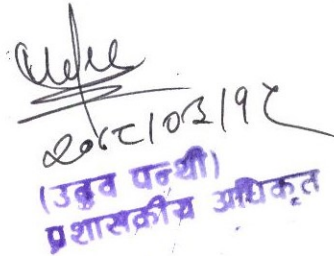 २०८८/०३/१८
(उद्धव पन्थी)
प्रशासकीय अधिकृत